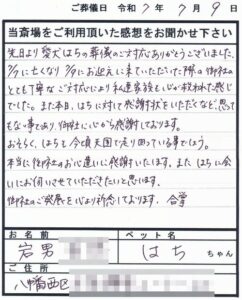 ご葬儀日 令和 7年 7月 9日
当斎場をご利用頂いた感想をお聞かせ下さい
先日より愛犬はちの葬儀のご対応ありがとうございました。
7/7に亡くなり 7/9にお迎えに来ていただいた際の御社の
とても丁寧なご対応により私達家族も心が救われた感じ
でした。また本日、はちに対して感謝状をいただくなど、思って
もない事であり御社に心から感謝しております。
おそらく、はちも今頃天国で走り回っている事でしょう。
本当に御社のお心遣いに感謝いたします。また、はちに会
いにお伺いさせていただきたいと思います。
御社のご発展を心よりお祈念しております。 合掌
お名前
ペット名
岩男
はち
ちゃん
ご住所
八幡西区